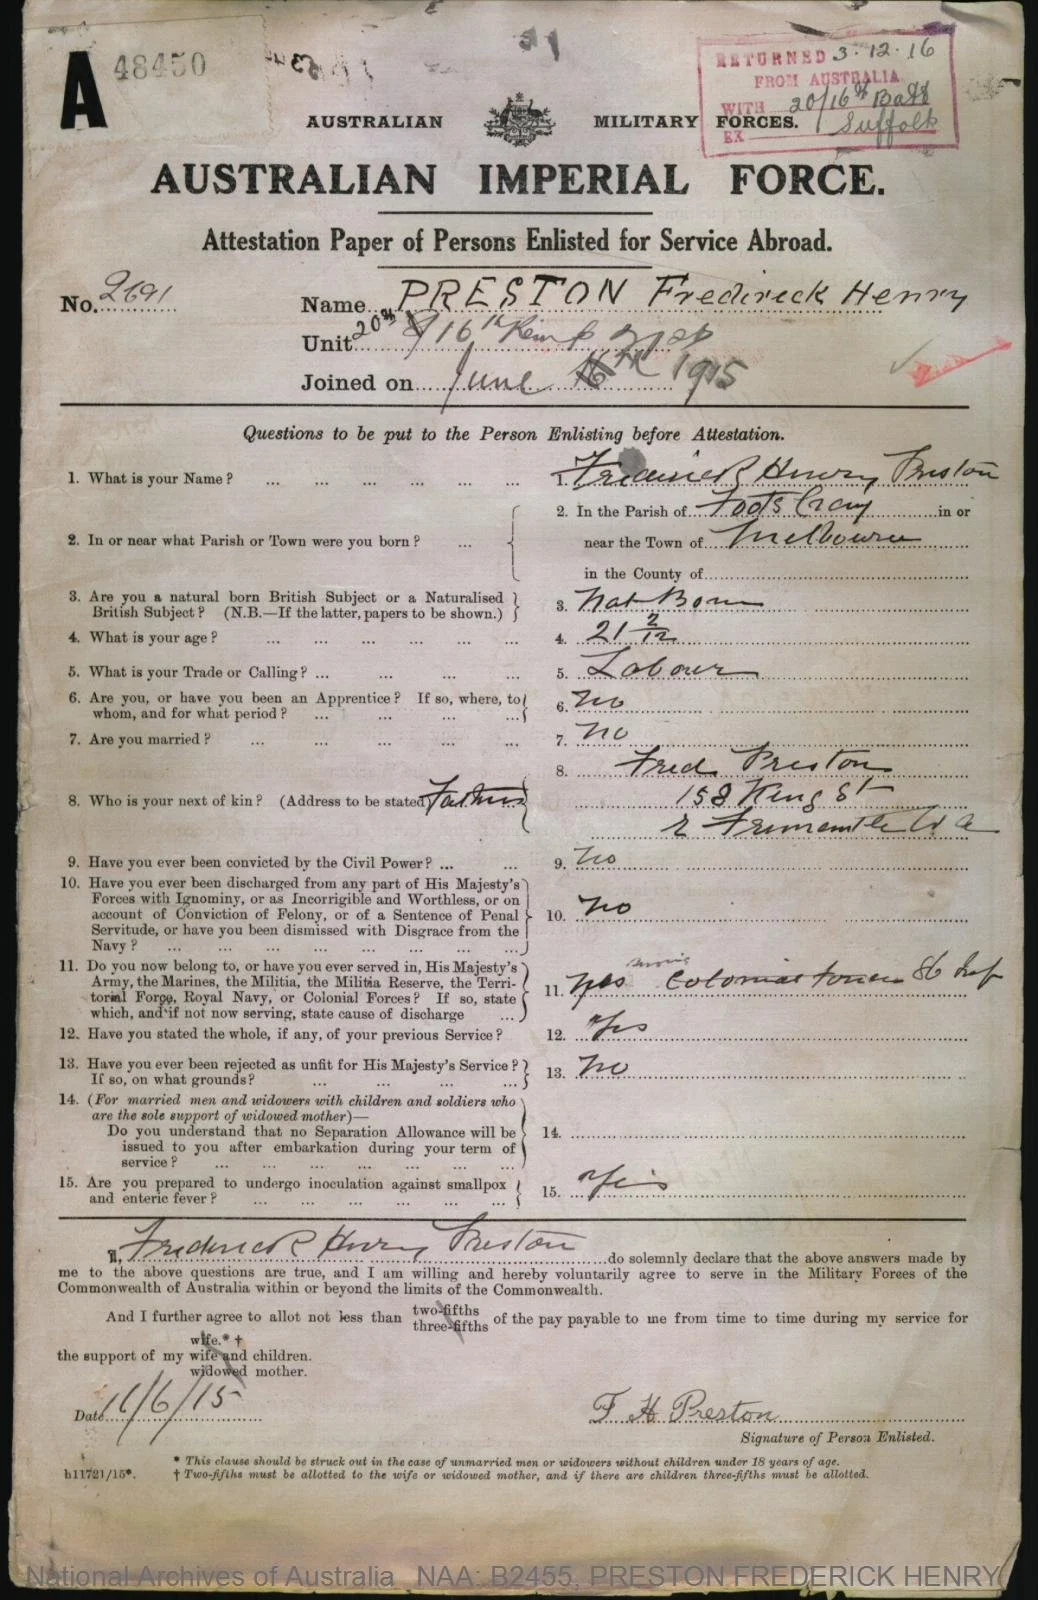 A 48450
RETURNED 3.12.16
FROM AUSTRALIA
WITH 20/16th Batt
EX Suffolk
AUSTRALIAN MILITARY FORCES.
AUSTRALIAN IMPERIAL FORCE.
Attestation Paper of Persons Enlisted for Service Abroad.
No. 2691
Name PRESTON Fredireck Henry
Unit 16th Reinf
Joined on June 1915
Questions to be put to the Person Enlisting before Attestation.
1. What is your Name? ... ... ... ... ... ... 1. Frederick Henry Preston
2. In or near what Parish or Town were you born? ...
2. In the Parish of Foots Cray in or
near the Town of Melbourne
in the County of
3. Are you a natural born British Subject or a Naturalised
British Subject? (N.B.—If the latter, papers to be shown.)
3. Nat Born
4. What is your age? ... ... ... ... ... ... 4. 21 2/12
5. What is your Trade or Calling? ... ... ... ... 5. Labourer
6. Are you, or have you been an Apprentice? If so, where, to
whom, and for what period? ... ... ... ...
6. No
7. Are you married? ... ... ... ... ... 7. No
8. Who is your next of kin? (Address to be stated) Father
8. Fred Preston
158 King St
E Fremantle W A
9. Have you ever been convicted by the Civil Power? ... ... 9. No
10. Have you ever been discharged from any part of His Majesty's
Forces with Ignominy, or as Incorrigible and Worthless, or on
account of Conviction of Felony, or of a Sentence of Penal
Servitude, or have you been dismissed with Disgrace from the
Navy? ... ... ... ... ... ... ...
10. No
11. Do you now belong to, or have you ever served in, His Majesty's
Army, the Marines, the Militia, the Militia Reserve, the Terri-
torial Force, Royal Navy, or Colonial Forces? If so, state
which, and if not now serving, state cause of discharge ...
11. Yes serving Colonial forces 86 Inf
12. Have you stated the whole, if any, of your previous Service? 12. Yes
13. Have you ever been rejected as unfit for His Majesty's Service?
If so, on what grounds? ... ... ... ...
13. No
14. (For married men and widowers with children and soldiers who
are the sole support of widowed mother)—
Do you understand that no Separation Allowance will be
issued to you after embarkation during your term of
service? ... ... ... ... ... ... ...
14.
15. Are you prepared to undergo inoculation against smallpox
and enteric fever? ... ... ... ... ...
15. Yes
I, Frederick Henry Preston do solemnly declare that the above answers made by
me to the above questions are true, and I am willing and hereby voluntarily agree to serve in the Military Forces of the
Commonwealth of Australia within or beyond the limits of the Commonwealth.
And I further agree to allot not less than two-fifths
three-fifths of the pay payable to me from time to time during my service for
wife.* †
the support of my wife and children.
widowed mother.
Date 11/6/15
F H Preston
Signature of Person Enlisted.
* This clause should be struck out in the case of unmarried men or widowers without children under 18 years of age.
b11721/15*. † Two-fifths must be allotted to the wife or widowed mother, and if there are children three-fifths must be allotted.
National Archives of Australia NAA: B2455, PRESTON FREDERICK HENRY